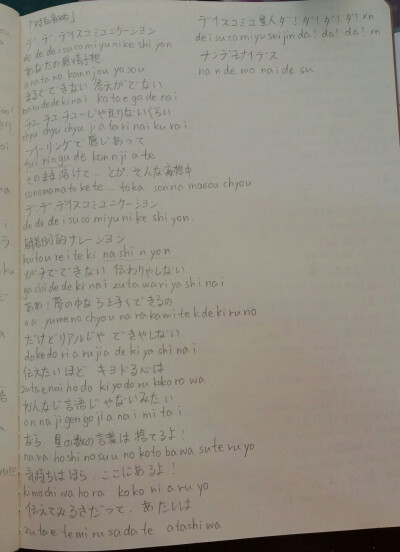 「対話省略」
デ デ ディスコミュニケーション
de de dei su co mi yu ni ke shi yon
あなたの感情予想
a na ta no kann jou yo sou
まるでできない 答えがでない
maru de de ki nai ko ta e ga de nai
チュ チュ チューじゃ足りないくらい
chyu chyu chyu ji a ta ri nai ku ra i
フィーリングで感じあって
fui ri n gu de kann ji a te
そのまま溶けて…とか、そんな妄想中
so no ma ma to ke te … to ka so n na mo u sou chyou
デ、デ ディスコミュニケーション
de de dei su co mi yu ni ke shi yon.
na shi n yon
ガチでできない 伝わりゃしない
ga chi de de ki nai zu ta wa ri ya shi na i
ああ!夢の中なら上手くできるの
a a yu me no chyou na ra ka mi te k de ki ru no
だけどリアルじゃ できやしない
da ke do ri a ru ji a de ki ya shi na i
伝えたいほど キョドる心は
zu ta e na i ho do ki yo do ru ko ko ro wa
おんなじ言語じゃないみたい
o n na ji gen go ji a na i mi ta i
なら 星の数の言葉は捨てるよ!
na ra ho shi no su u no ko to ba wa su te ru yo
気持ちはほら、ここにあるよ!
ki mo chi wa ho ra ko ko ni a ru yo
伝えてみるさだって、あたしは
zu ta e te mi ru sa da te a ta shi wa
ディスコミュ星人ダ!ダ!ダ!ダ!×n
de i su co mi yu sei jin da! da! da! m
ナンデモナイデス
na n de mo na i de su